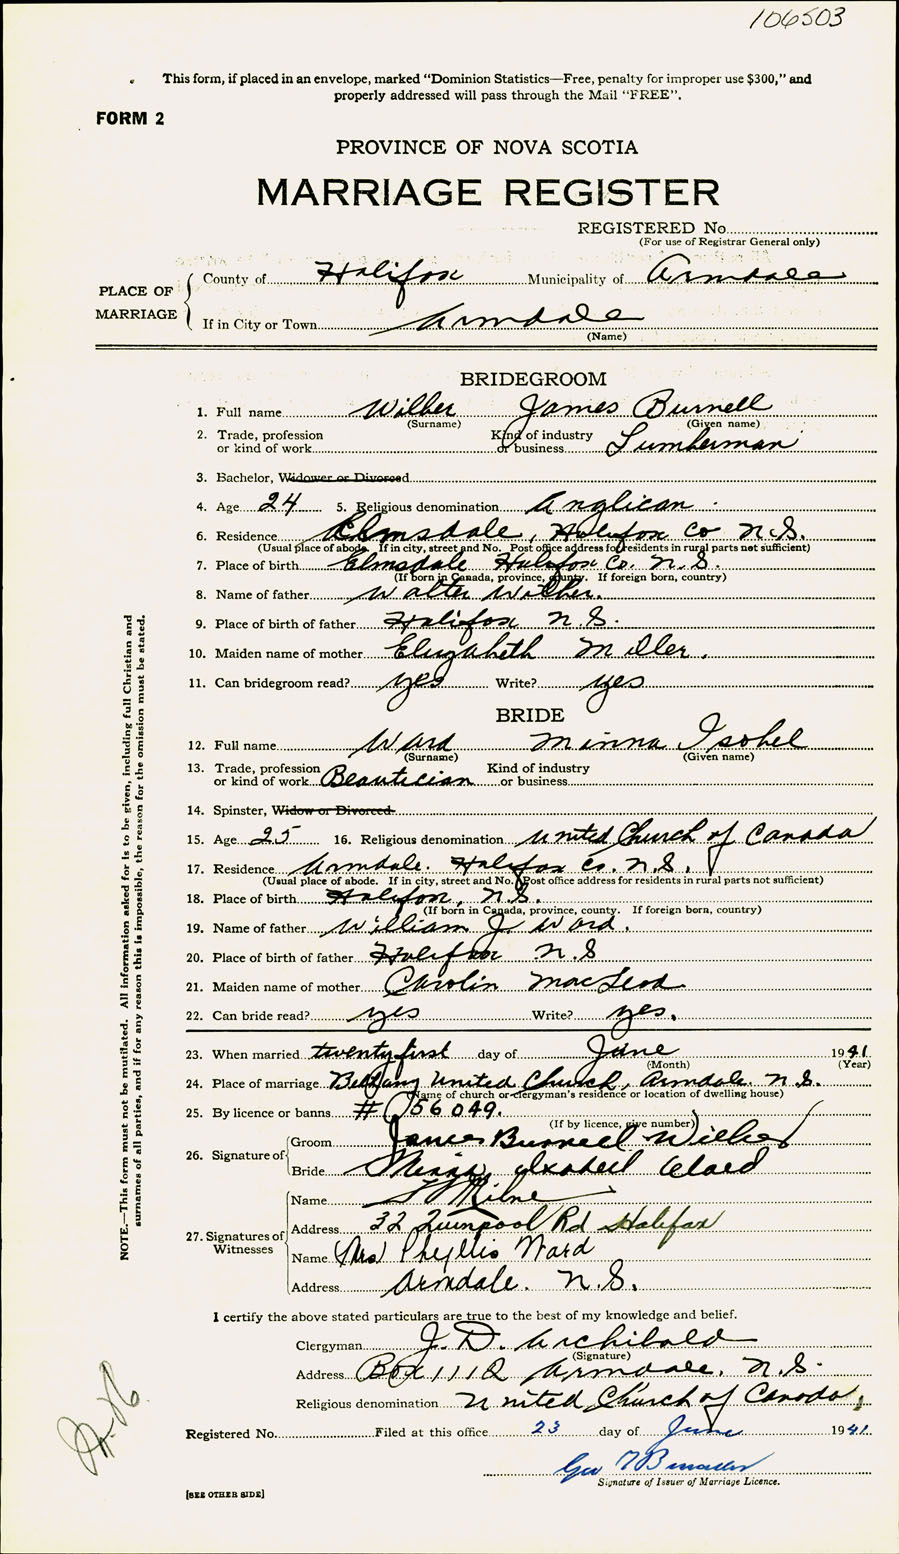 106503
This form, if placed in an envelope, marked "Dominion Statistics—Free, penalty for improper use $300," and
properly addressed will pass through the Mail "FREE".
FORM 2
PROVINCE OF NOVA SCOTIA
MARRIAGE REGISTER
REGISTERED No.
(For use of Registrar General only)
PLACE OF MARRIAGE
County of Halifax Municipality of Armdale
If in City or Town Armdale
(Name)
BRIDEGROOM
1. Full name Wilber James Burnell
(Surname) (Given name)
2. Trade, profession or kind of work Kind of industry or business Lumberman
3. Bachelor, Widower or Divorced
4. Age 24 5. Religious denomination Anglican
6. Residence Elmsdale, Halifax Co N.S.
(Usual place of abode. If in city, street and No. Post office address for residents in rural parts not sufficient)
7. Place of birth Elmsdale Halifax Co. N.S.
(If born in Canada, province, county. If foreign born, country)
8. Name of father Walter Wilber.
9. Place of birth of father Halifax N.S.
10. Maiden name of mother Elizabeth Miller.
11. Can bridegroom read? yes Write? yes
BRIDE
12. Full name Ward Minna Isobel
(Surname) (Given name)
13. Trade, profession or kind of work Beautician Kind of industry or business
14. Spinster, Widow or Divorced.
15. Age 25 16. Religious denomination United Church of Canada
17. Residence Armdale. Halifax Co. N.S.
(Usual place of abode. If in city, street and No. Post office address for residents in rural parts not sufficient)
18. Place of birth Halifax, N.S.
(If born in Canada, province, county. If foreign born, country)
19. Name of father William J Ward.
20. Place of birth of father Halifax N.S
21. Maiden name of mother Carolin MacLeod
22. Can bride read? yes Write? yes.
23. When married twenty first day of June 1941
(Month) (Year)
24. Place of marriage Bethany United Church, Armdale. N.S.
(Name of church or clergyman's residence or location of dwelling house)
25. By licence or banns # 056049.
(If by licence, give number)
26. Signature of
Groom James Burnell Wilber
Bride Minna Isabell Ward
27. Signatures of Witnesses
Name Milne
Address 32 Quinpool Rd Halifax
Name (Mrs) Phyllis Ward
Address Armdale. N.S.
I certify the above stated particulars are true to the best of my knowledge and belief.
Clergyman J. D. Archibald
(Signature)
Address Box 111Q Armdale. N.S.
Religious denomination United Church of Canada,
Registered No. Filed at this office 23 day of June 1941.
Geo
Signature of Issuer of Marriage Licence.
[SEE OTHER SIDE]
NOTE.—This form must not be mutilated. All information asked for is to be given, including full Christian and
surnames of all parties, and if for any reason this is impossible, the reason for the omission must be stated.